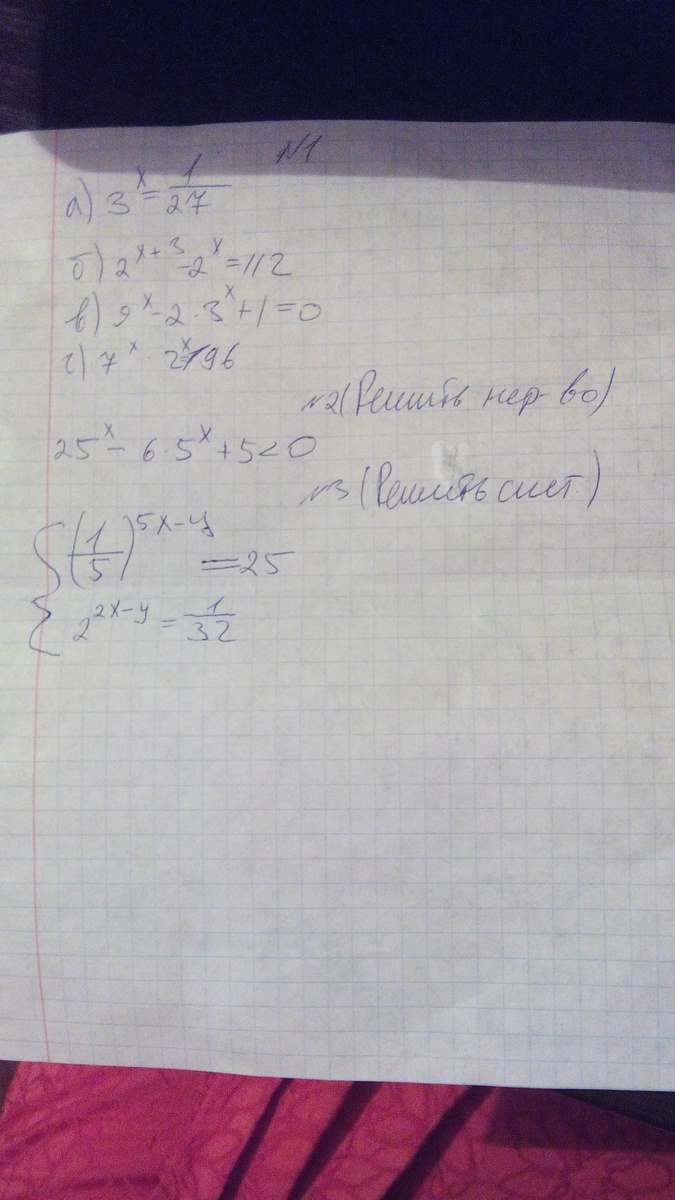 №1
а) 3^x = 1/27
б) 2^{x+3} - 2^x = 112
в) 9^x - 2 · 3^x + 1 = 0
г) 7^x · 2^x = 196
№2 (Решить нер-во)
25^x - 6 · 5^x + 5 < 0
№3 (Решить сист.)
{ (1/5)^{5x-y} = 25
2^{2x-y} = 1/32